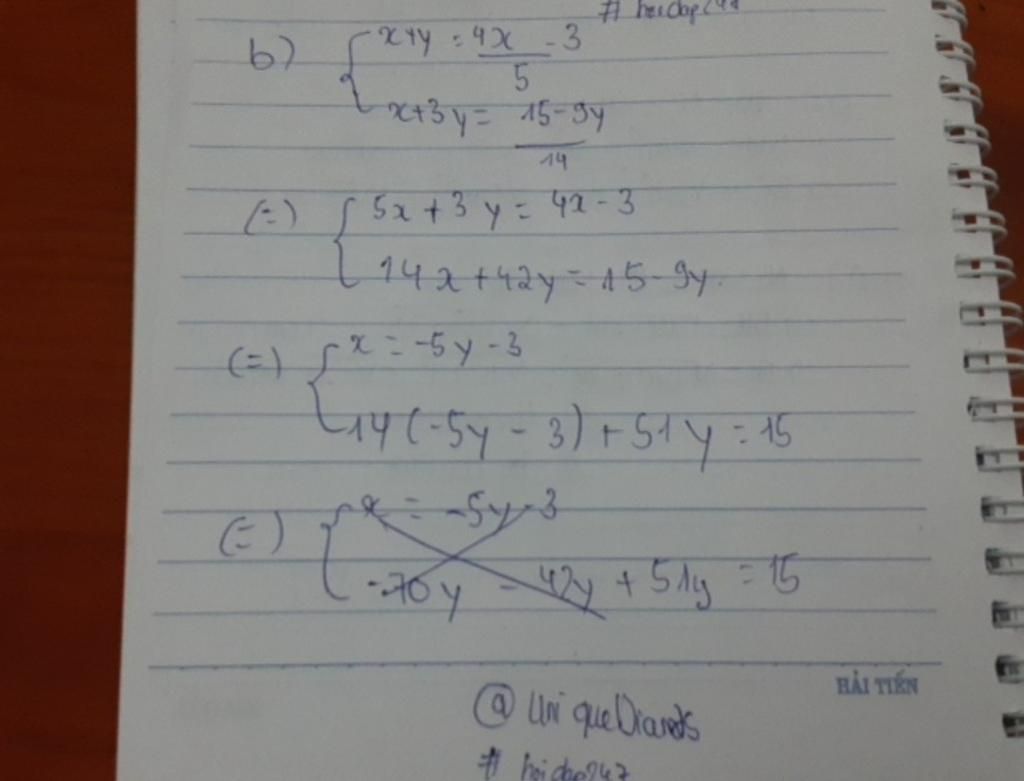 # hoidap247
b) { x+y = 4x - 3 / 5
x+3y = 15-9y / 14
(=) { 5x + 3y = 4x - 3
14x + 42y = 15 - 9y.
(=) { x = -5y - 3
14(-5y - 3) + 51y = 15
(=) { x = -5y - 3
-70y - 42y + 51y = 15
HẢI TIẾN
@
# hoidap247